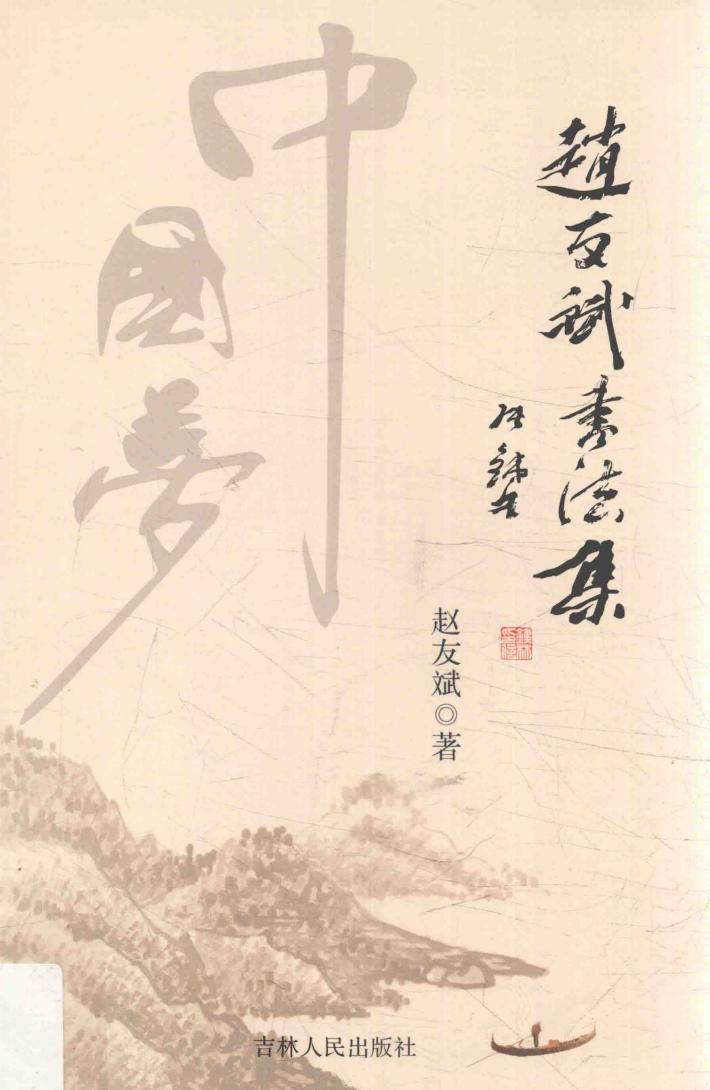 趙友斌書法集
中國夢
赵友斌◎著
吉林人民出版社